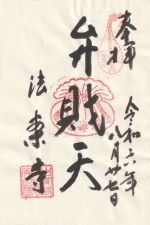 奉拝
令和六年
八月廿七日
弁財天
法乗寺